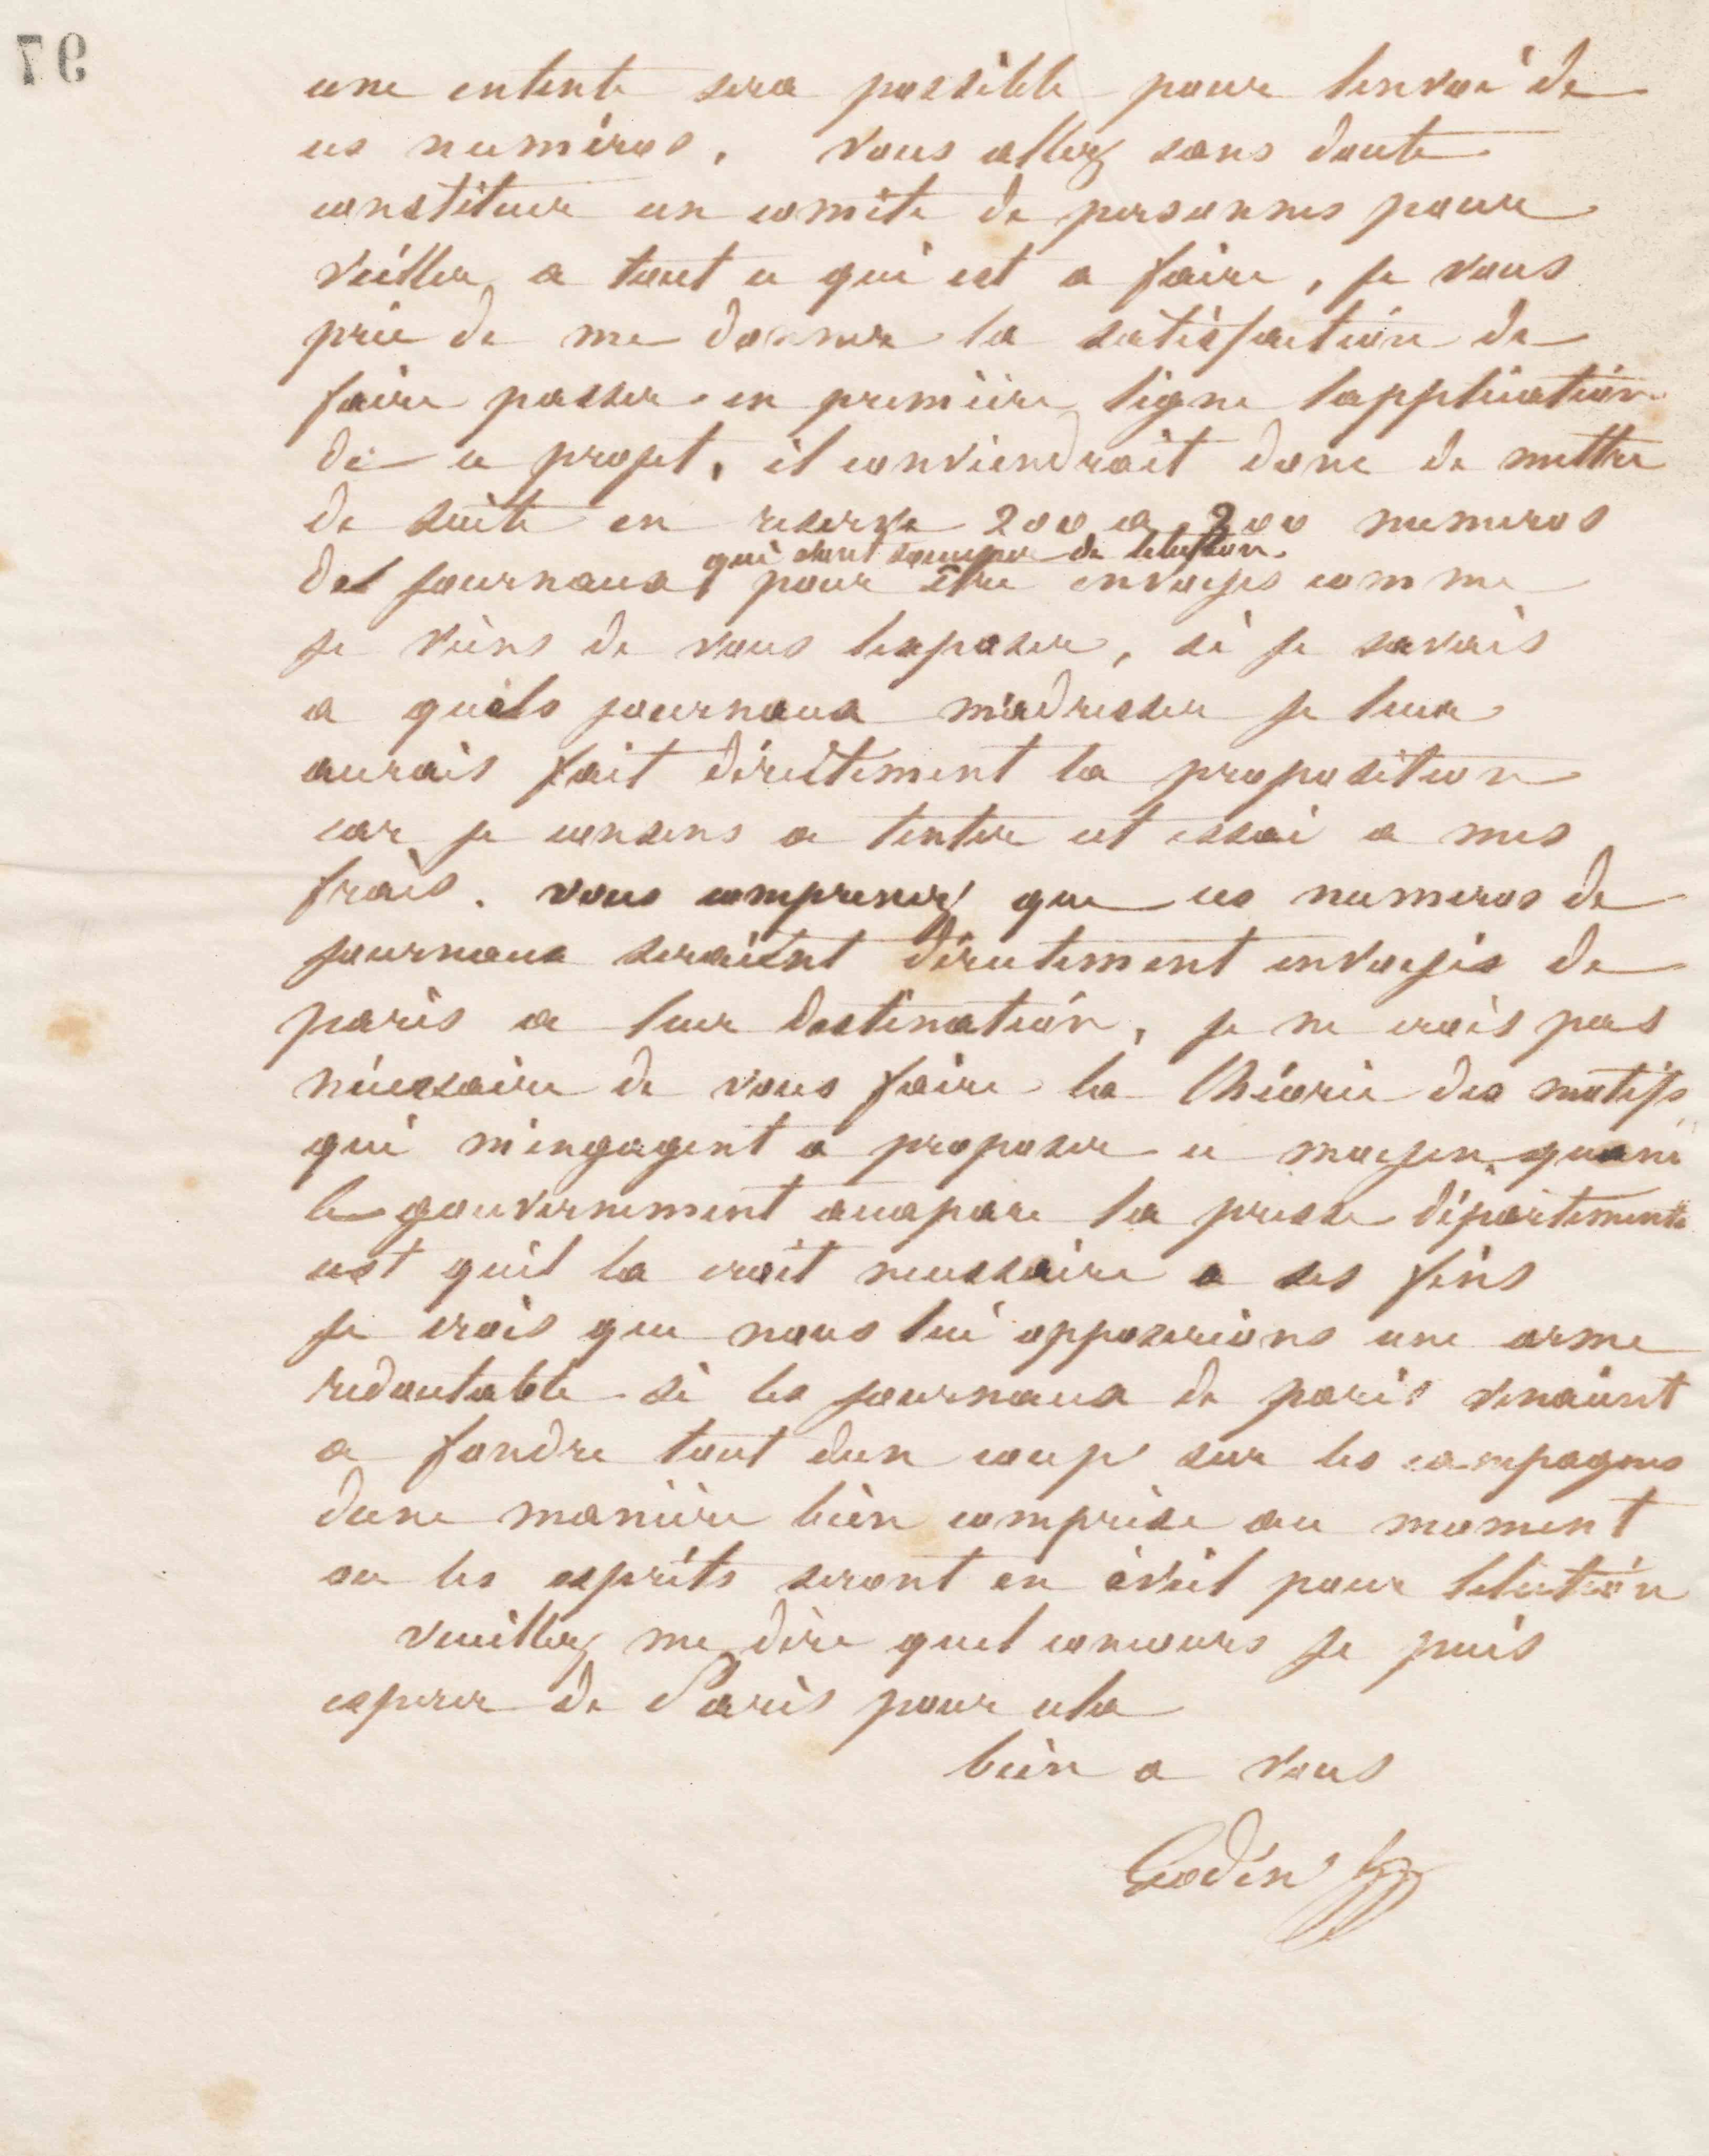 97
une entente sera possible pour lenvoi de
ces numéros. vous allez sans doute
constituer un comite de personnes pour
veiller a tout ce qui est a faire, je vous
prie de me donner la satisfaction de
faire passer en premiére ligne lapplication
de ce projet, il conviendrait donc de mettre
de suite en reserve 200 a 200 numeros
qui vont soccuper de lélection
des journaux pour être envoyés comme
je viens de vous lexposer, si je savais
a quels journaux m'adresser je leur
aurais fait directement la proposition
car je consens a tenter cet essai a mes
frais. vous comprenez que ces numeros de
journaux seraient directement envoyés de
paris a leur destination, je ne crois pas
nécessaire de vous faire la théorie des motifs
qui m'engagent a proposer ce moyen, quand
le gouvernement accapare la presse départementale
cest quil la croit necessaire a ses fins
je crois que nous lui opposerions une arme
redoutable si les journaux de paris venaient
a fondre tout dun coup sur les campagnes
dune maniére bien comprise au moment
ou les esprits seront en éveil pour lelection
veuillez me dire quel concours je puis
esperer de Paris pour cela
bien a vous
Godin